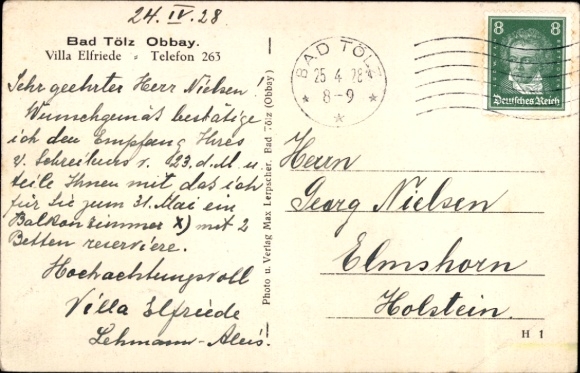 24. IV. 28
Bad Tölz Obbay.
Villa Elfriede - Telefon 263
Sehr geehrter Herr Nielsen!
Wunschgemäß bestätige
ich den Empfang Ihres
v. Schreibens v. 23. d. M. u.
teile Ihnen mit das ich
für Sie zum 31. Mai ein
Balkonzimmer X) mit 2
Betten reserviere.
Hochachtungsvoll
Villa Elfriede
Lehmann-
Photo u. Verlag Max Lerpscher, Bad Tölz (Obbay)
BAD TÖLZ
25 4 28
8-9
8 8
Deutsches Reich
Herrn
Georg Nielsen
Elmshorn
Holstein.
H 1